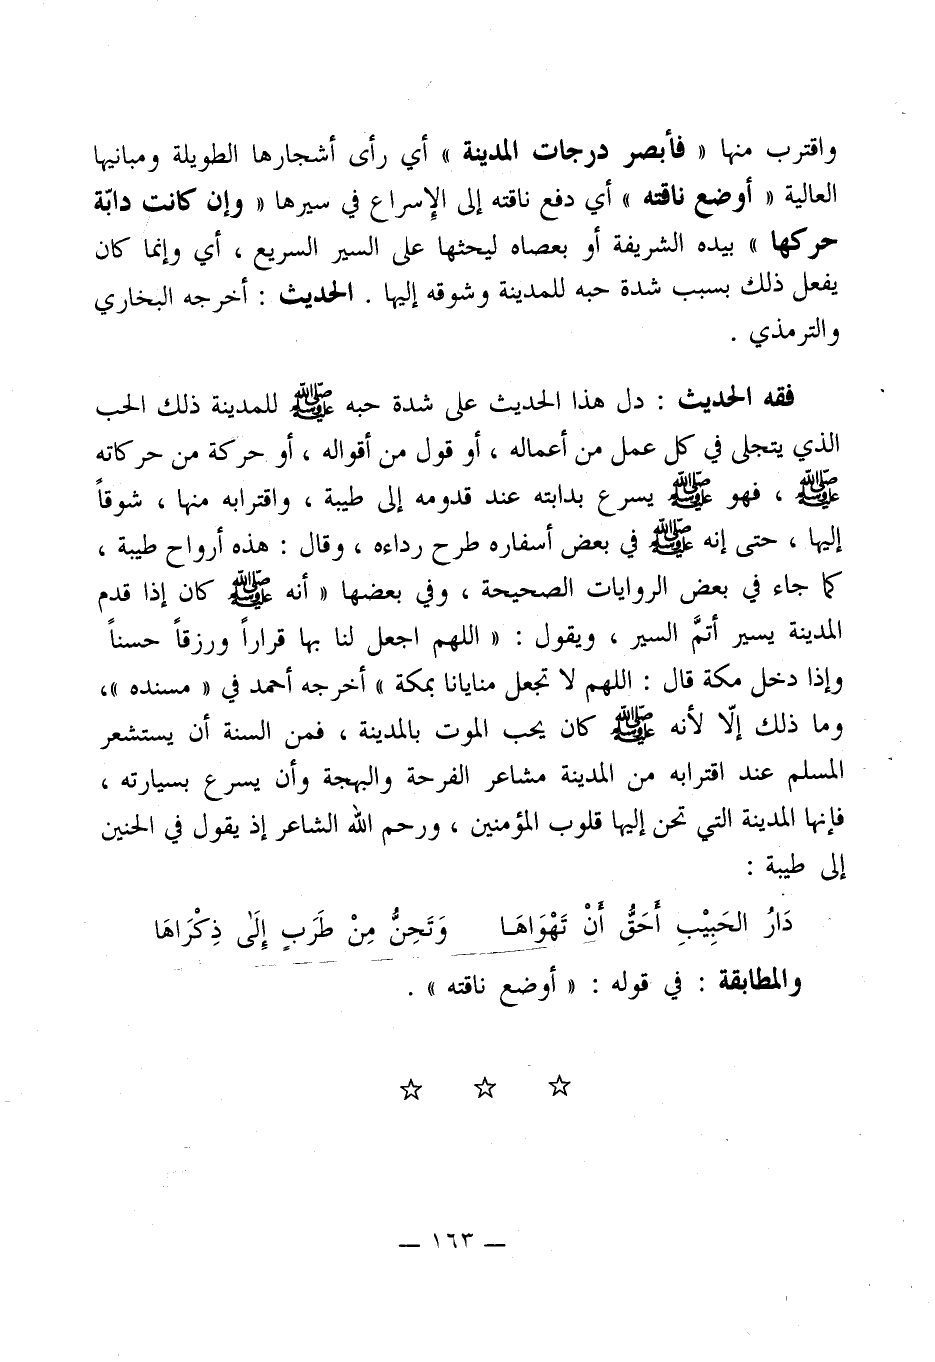 واقترب منها « فأبصر درجات المدينة » أي رأى أشجارها الطويلة ومبانيها
العالية « أوضع ناقته » أي دفع ناقته إلى الإسراع في سيرها « وإن كانت دابّة
حركها » بيده الشريفة أو بعصاه ليحثها على السير السريع ، أي وإنما كان
يفعل ذلك بسبب شدة حبه للمدينة وشوقه إليها . الحديث : أخرجه البخاري
والترمذي .
فقه الحديث : دل هذا الحديث على شدة حبه ﷺ للمدينة ذلك الحب
الذي يتجلى في كل عمل من أعماله ، أو قول من أقواله ، أو حركة من حركاته
ﷺ ، فهو ﷺ يسرع بدابته عند قدومه إلى طيبة ، واقترابه منها ، شوقاً
إليها ، حتى إنه ﷺ في بعض أسفاره طرح رداءه ، وقال : هذه أرواح طيبة ،
كما جاء في بعض الروايات الصحيحة ، وفي بعضها « أنه ﷺ كان إذا قدم
المدينة يسير أتمَّ السير ، ويقول : « اللهم اجعل لنا بها قراراً ورزقاً حسناً
وإذا دخل مكة قال : اللهم لا تجعل منايانا بمكة » أخرجه أحمد في « مسنده »،
وما ذلك إلّا لأنه ﷺ كان يحب الموت بالمدينة ، فمن السنة أن يستشعر
المسلم عند اقترابه من المدينة مشاعر الفرحة والبهجة وأن يسرع بسيارته ،
فإنها المدينة التي تحن إليها قلوب المؤمنين ، ورحم الله الشاعر إذ يقول في الحنين
إلى طيبة :
دَارُ الحَبِيْبِ أَحَقُّ أَنْ تَهْوَاهَا وَتَحِنُّ مِنْ طَرَبٍ إِلَى ذِكْرَاهَا
والمطابقة : في قوله : « أوضع ناقته » .
☆ ☆ ☆
ــ ١٦٣ ــ